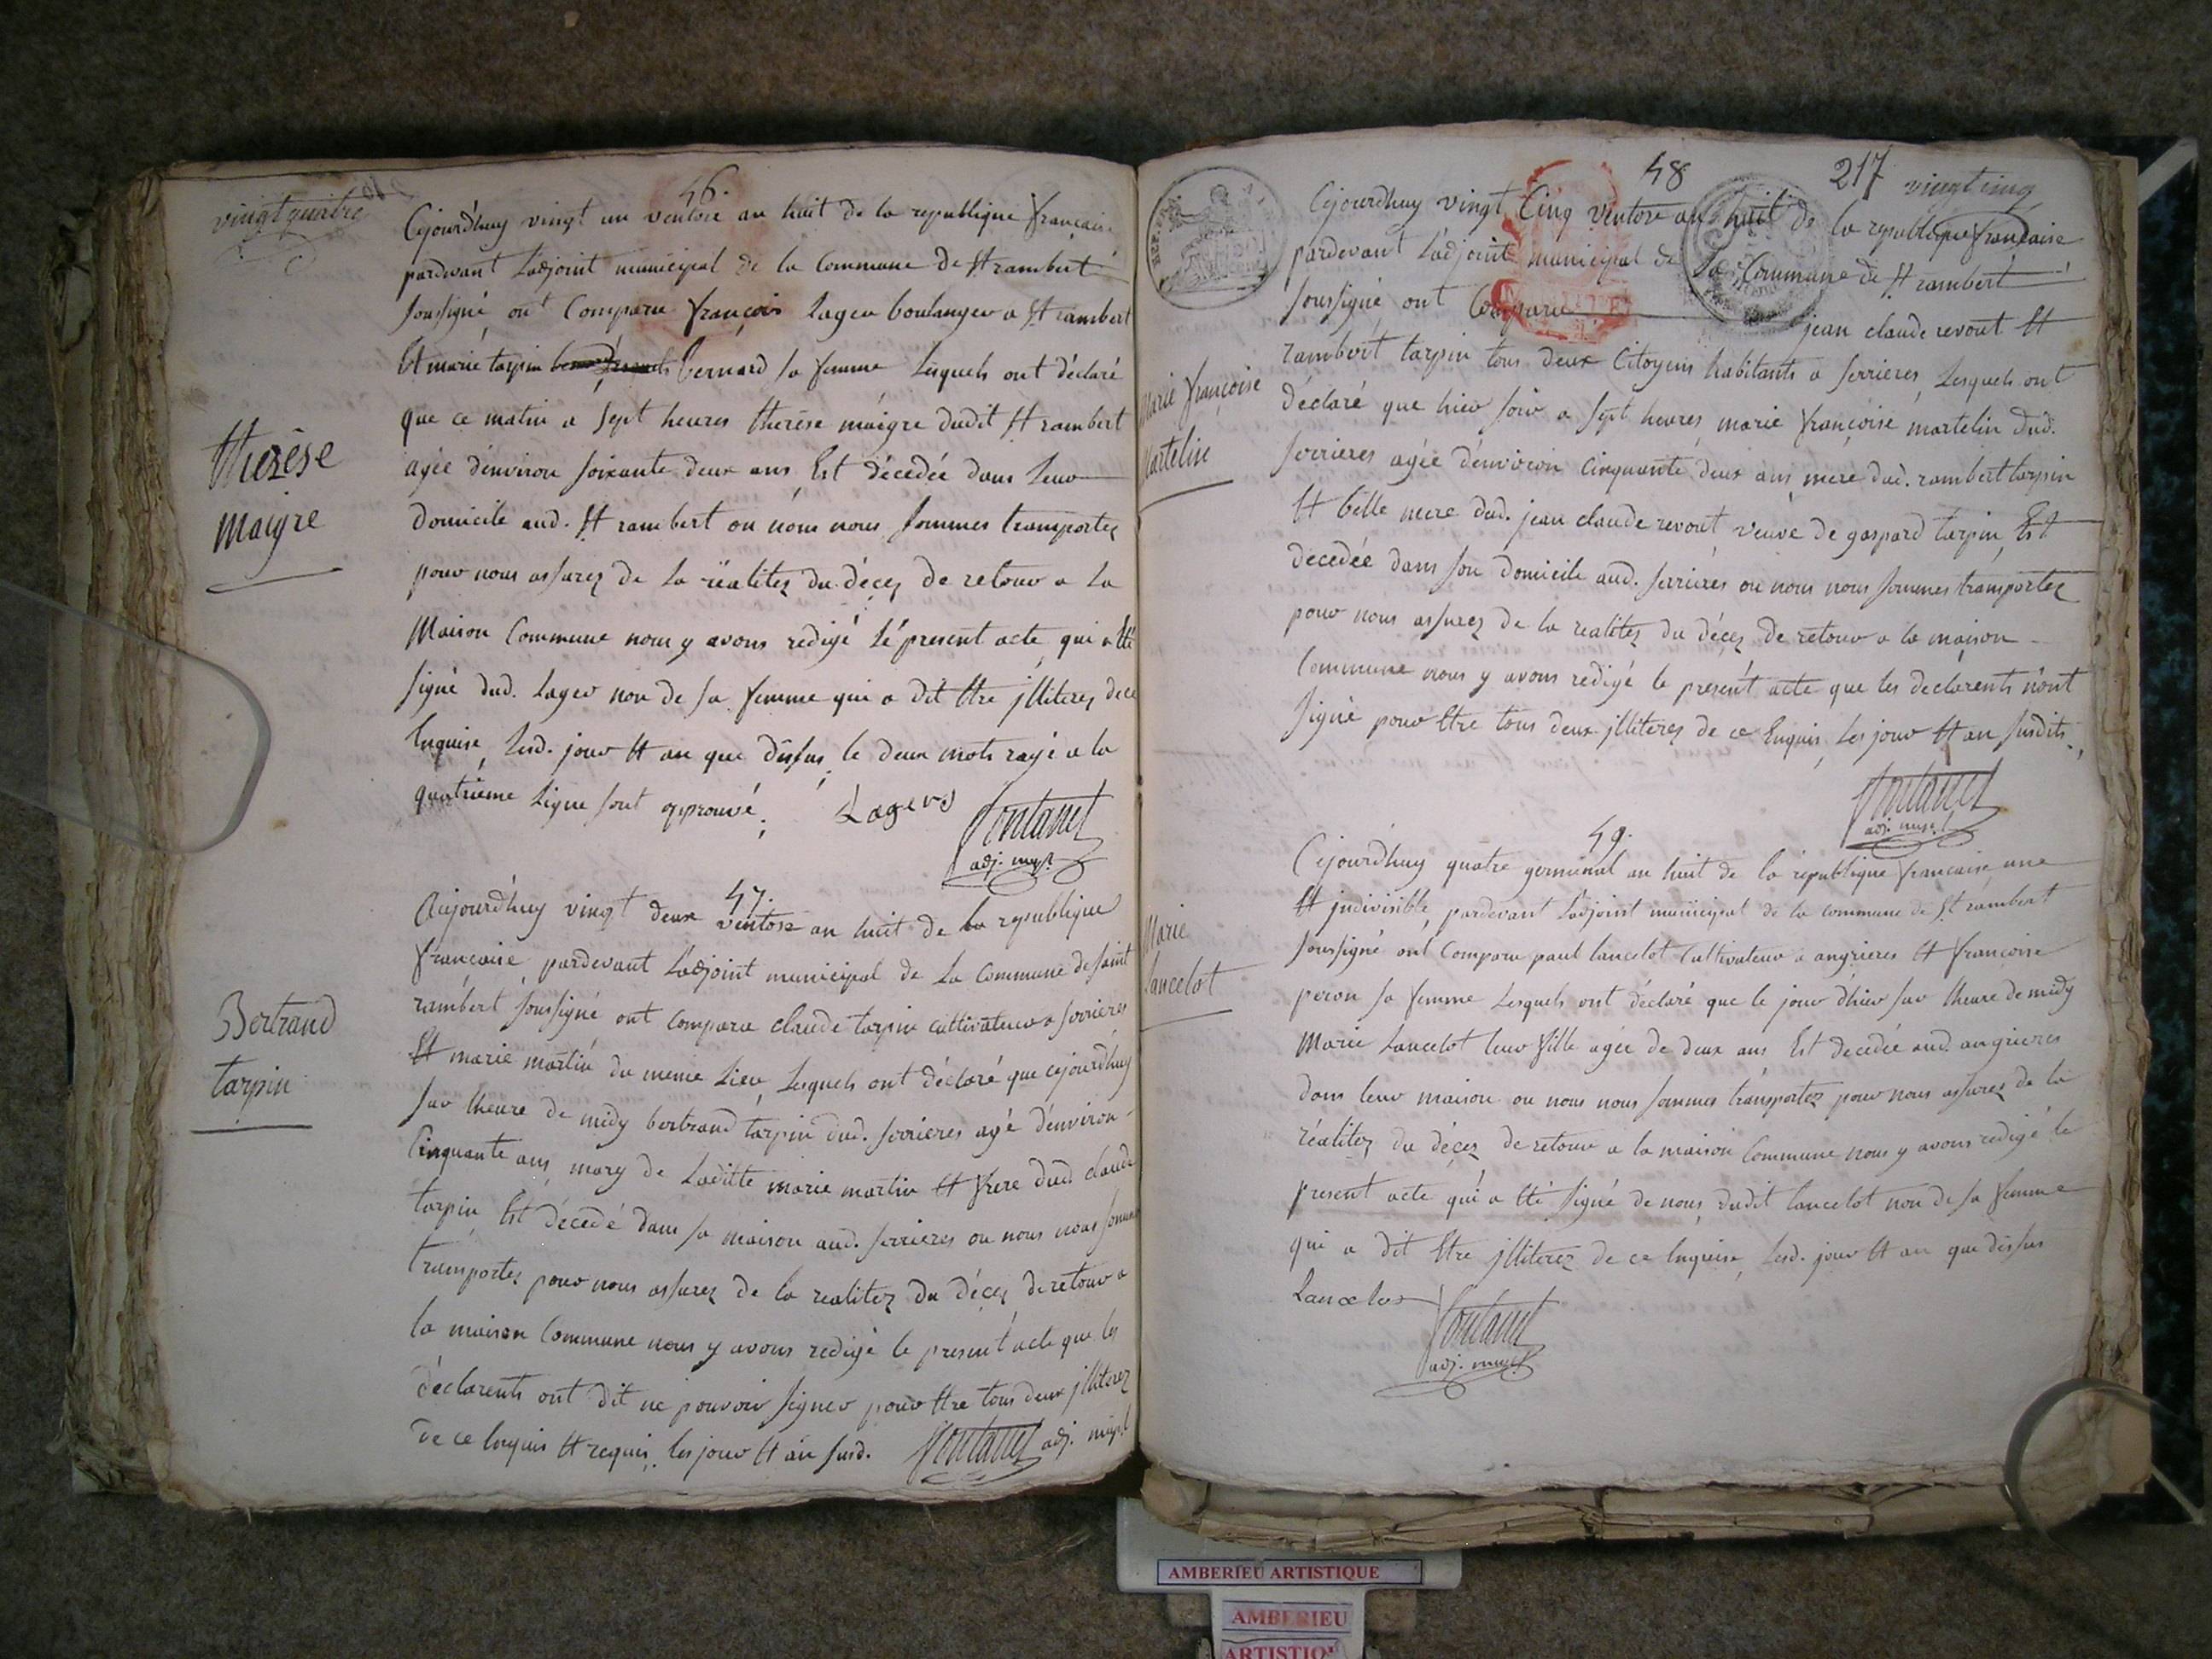 vingt quatre
46.
Cejourd'huy vingt un ventose an huit de la republique francaise
pardevant L'adjoint municipal de la Commune de St rambert
soussigné ont Comparu françois Lager boulanger a St rambert
Et marie tarpin bernard sa femme Lesquels ont déclaré
que ce matin a sept heures therese maigre dudit St rambert
agée d'environ soixante deux ans Est décedée dans Leur
domicile aud. St rambert ou nous nous sommes transportez
pour nous assurez de La réalitez du déçez de retour a La
Maison Commune nous y avons redigé Le present acte qui a Eté
signé dud. Lager non de sa femme qui a dit Etre jlliterez de ce
Enquise Lesd. jour Et an que dessus le deux mots rayé a la
quatrieme Ligne sont approuvé.
Lagers
Fontanel
adj. mupl
therese
maigre
47.
Aujourd'huy vingt deux ventose an huit de la republique
francaise pardevant L'adjoint municipal de La Commune de saint
rambert soussigné ont comparu claude tarpin cultivateur a serrieres
Et marie martin du meme Lieu Lesquels ont déclaré que cejourd'huy
sur Lheure de midy bertrand tarpin dud. serrieres agé d'environ
Cinquante ans mary de Laditte marie martin Et frere dud. claude
tarpin Est décedé dans sa maison aud. serrieres ou nous nous sommes
transportez pour nous assurez de la realitez du déçez de retour a
la maison Commune nous y avons redigé le present acte que les
déclarents ont dit ne pouvoir signer pour Etre tous deux jlliterez
de ce Enquis Et requis les jour Et an susd.
Fontanel adj. mupl
Bertrand
tarpin
48
217
vingt cinq
Cejourdhuy vingt Cinq Ventose an huit de la republique francaise
pardevant L'adjoint municipal de La Commune de St rambert
soussigné ont Comparu jean claude revout Et
rambert tarpin tous deux Citoyens habitants a serrieres Lesquels ont
déclaré que hier soir a sept heures marie françoise martelin dud.
serrieres agée d'environ Cinquante deux ans mere dud. rambert tarpin
Et belle mere dud. jean claude revout veuve de gaspard tarpin Est
decedée dans son domicile aud. serrieres ou nous nous sommes transportez
pour nous assurez de la realitez du déçez de retour a la maison
Commune nous y avons redigé le present acte que les declarents n'ont
signé pour Etre tous deux jlliterez de ce Enquis Les jour Et an susdits.
Fontanel
adj. mupl
Marie françoise
Marteline
49.
Cejourd'huy quatre germinal an huit de la republique francaise une
Et jndivisible, pardevant L'adjoint municipal de la commune de St rambert
soussigné ont Comparu paul lancelot Cultivateur a angrieres Et françoise
peron sa femme Lesquels ont déclaré que le jour d'hier sur lheure de midy
Marie Lancelot leur fille agée de deux ans Est decedée aud. angrieres
dans leur maison ou nous nous sommes transportez pour nous assurez de la
réalitez du déçez de retour a la maison Commune nous y avons redigé le
present acte qui a Eté signé de nous dudit lancelot non de sa femme
qui a dit Etre jlliterez de ce Enquise Lesd. jour Et an que dessus
Lancelot
Fontanel
adj. mupl
Marie
Lancelot
AMBERIEU ARTISTIQUE
AMBERIEU
ARTISTIQU